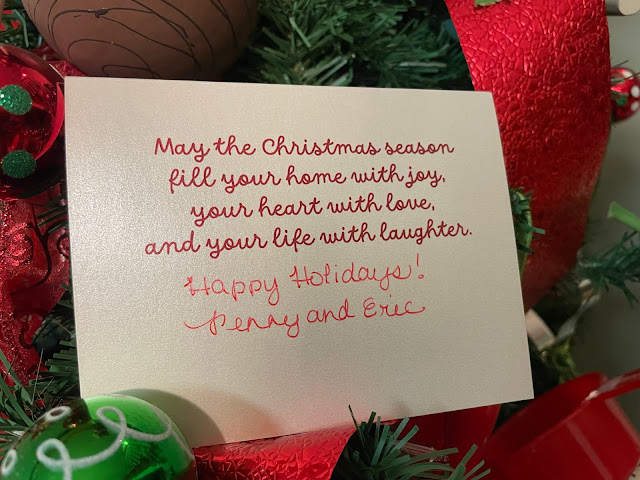 May the Christmas season
fill your home with joy,
your heart with love,
and your life with laughter.
Happy Holidays!
Penny and Eric